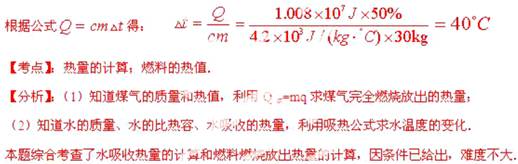 根据公式Q=cm△t得: △t=Q/cm=1.008×10⁷J×50%/4.2×10³J/(kg·°C)×30kg=40°C
【考点】:热量的计算;燃料的热值.
【分析】:(1)知道煤气的质量和热值,利用Q放=mq求煤气完全燃烧放出的热量;
(2)知道水的质量、水的比热容、水吸收的热量,利用吸热公式求水温度的变化.
本题综合考查了水吸收热量的计算和燃料燃烧放出热量的计算,因条件已给出,难度不大.